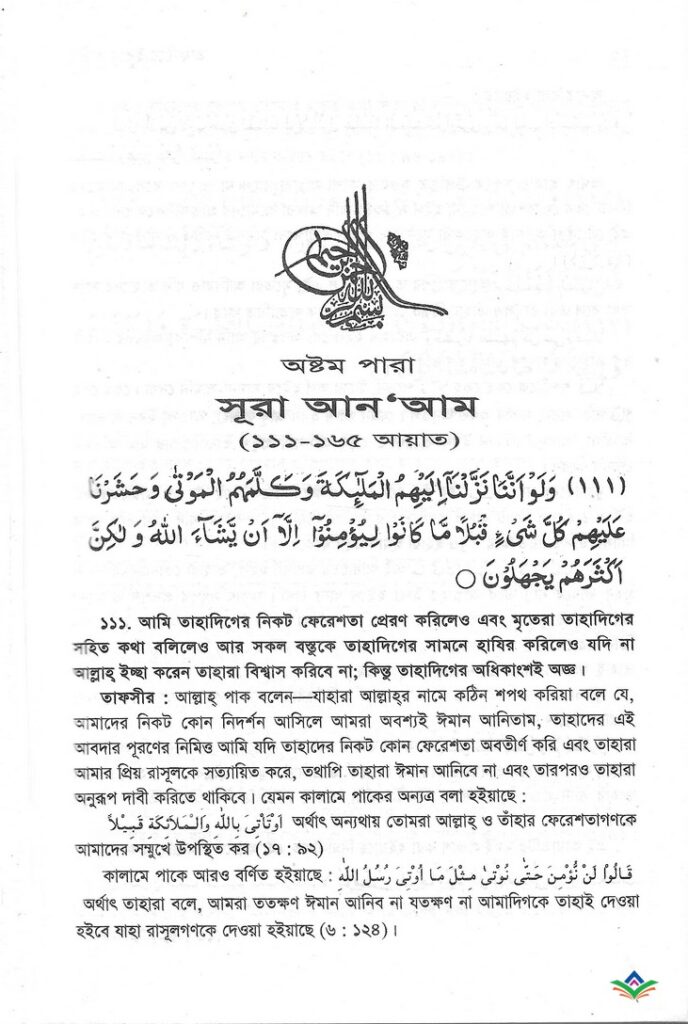 অষ্টম পারা
সূরা আন‘আম
(১১১-১৬৫ আয়াত)
(١١١) وَلَوْ اَنَّنَا نَزَّلْنَآ اِلَيْهِمُ الْمَلٰٓئِكَةَ وَكَلَّمَهُمُ الْمَوْتٰى وَحَشَرْنَا
عَلَيْهِمْ كُلَّ شَىْءٍ قُبُلًا مَّا كَانُوْا لِيُؤْمِنُوْٓا اِلَّآ اَنْ يَّشَآءَ اللّٰهُ وَلٰكِنَّ
اَكْثَرَهُمْ يَجْهَلُوْنَ ○
১১১. আমি তাহাদিগের নিকট ফেরেশতা প্রেরণ করিলেও এবং মৃতেরা তাহাদিগের
সহিত কথা বলিলেও আর সকল বস্তুকে তাহাদিগের সামনে হাযির করিলেও যদি না
আল্লাহ্ ইচ্ছা করেন তাহারা বিশ্বাস করিবে না; কিন্তু তাহাদিগের অধিকাংশই অজ্ঞ।
তাফসীর : আল্লাহ্ পাক বলেন—যাহারা আল্লাহ্‌র নামে কঠিন শপথ করিয়া বলে যে,
আমাদের নিকট কোন নিদর্শন আসিলে আমরা অবশ্যই ঈমান আনিতাম, তাহাদের এই
আবদার পূরণের নিমিত্ত আমি যদি তাহাদের নিকট কোন ফেরেশতা অবতীর্ণ করি এবং তাহারা
আমার প্রিয় রাসূলকে সত্যায়িত করে, তথাপি তাহারা ঈমান আনিবে না এবং তারপরও তাহারা
অনুরূপ দাবী করিতে থাকিবে। যেমন কালামে পাকের অন্যত্র বলা হইয়াছে :
اَوْتَأْتِىَ بِاللّٰهِ وَالْمَلَائِكَةِ قَبِيْلاً অর্থাৎ অন্যথায় তোমরা আল্লাহ্ ও তাঁহার ফেরেশতাগণকে
আমাদের সম্মুখে উপস্থিত কর (১৭ : ৯২)
কালামে পাকে আরও বর্ণিত হইয়াছে : قَالُوْا لَنْ نُّؤْمِنَ حَتّٰى نُوْتٰى مِثْلَ مَا اُوْتِىَ رُسُلُ اللّٰهِ
অর্থাৎ তাহারা বলে, আমরা ততক্ষণ ঈমান আনিব না যতক্ষণ না আমাদিগকে তাহাই দেওয়া
হইবে যাহা রাসূলগণকে দেওয়া হইয়াছে (৬ : ১২৪)।